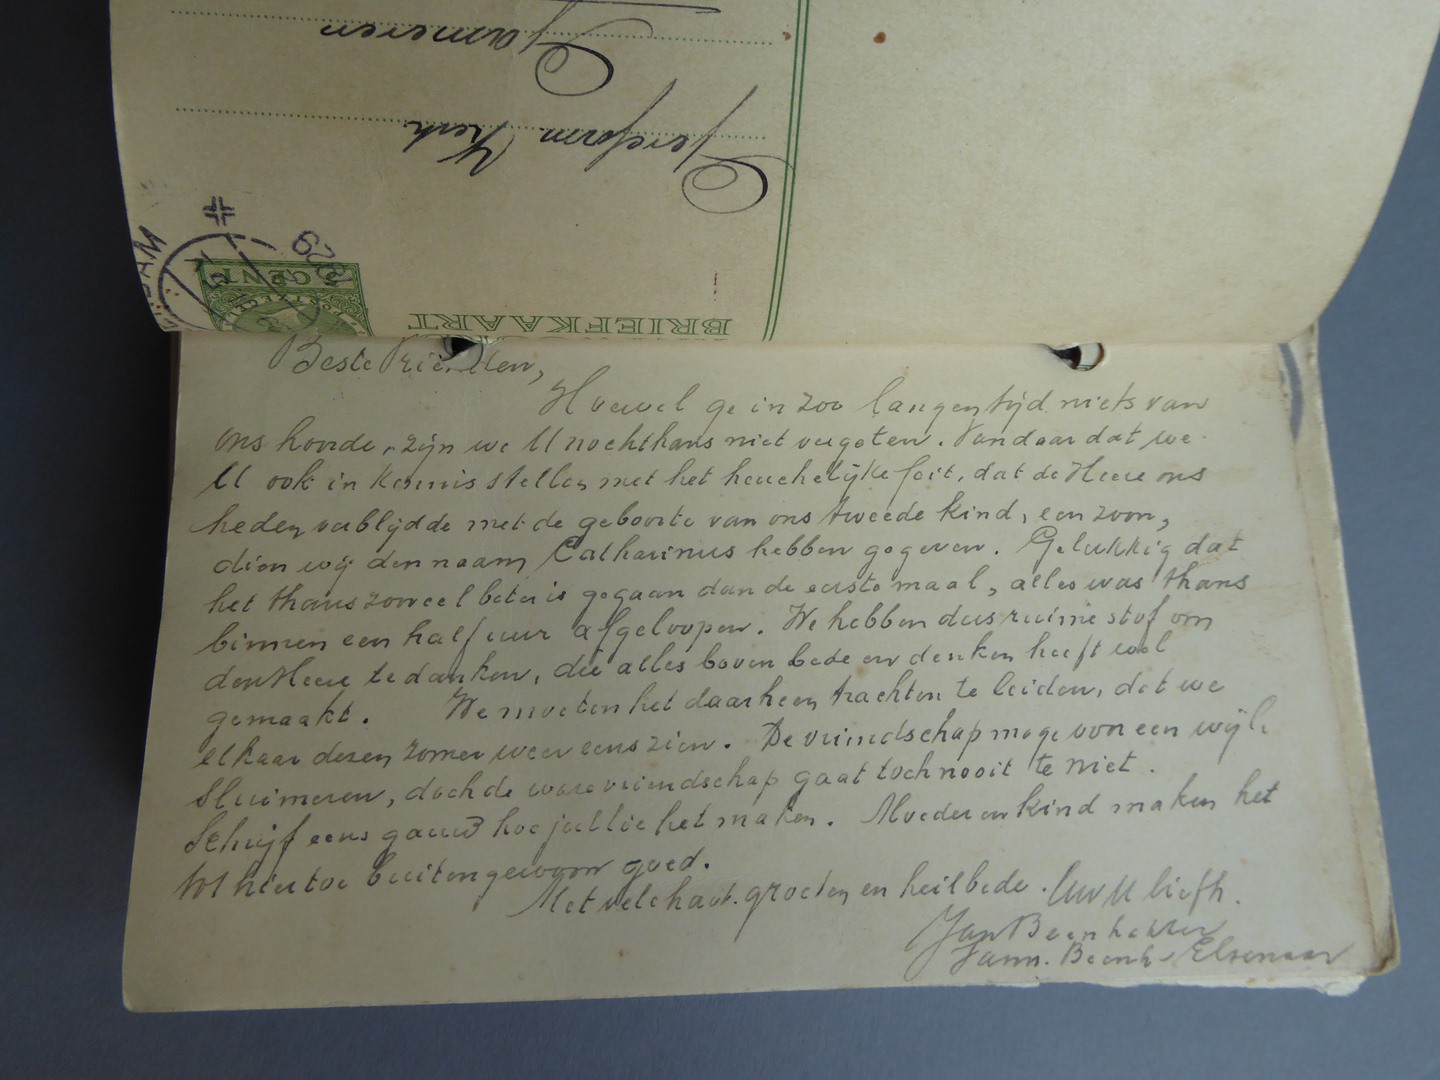 Gameren
Gereform Kerk
1929
DAM
5 CENT
BRIEFKAART
Beste Vrienden,
Hoewel ge in zoo langen tijd niets van
ons hoorde, zijn we U nochthans niet vergeten. Vandaar dat we
U ook in kennis stellen met het heuchelijke feit, dat de Heere ons
heden verblijdde met de geboorte van ons tweede kind, een zoon,
dien wij den naam Catharinus hebben gegeven. Gelukkig dat
het thans zooveel beter is gegaan dan de eerste maal, alles was thans
binnen een half uur afgeloopen. We hebben dus ruime stof om
den Heere te danken, die alles boven bede en denken heeft wel
gemaakt. We moeten het daarheen trachten te leiden, dat we
elkaar dezen zomer weer eens zien. De vriendschap moge voor een wijle
sluimeren, doch de ware vriendschap gaat toch nooit te niet.
Schrijf eens gauw hoe jullie het maken. Moeder en kind maken het
tot hiertoe buitengewoon goed.
Met vele hart. groeten en heilbede. Uw U liefh.
Jan Beenhakker
Jann. Beenh-Elzenaar